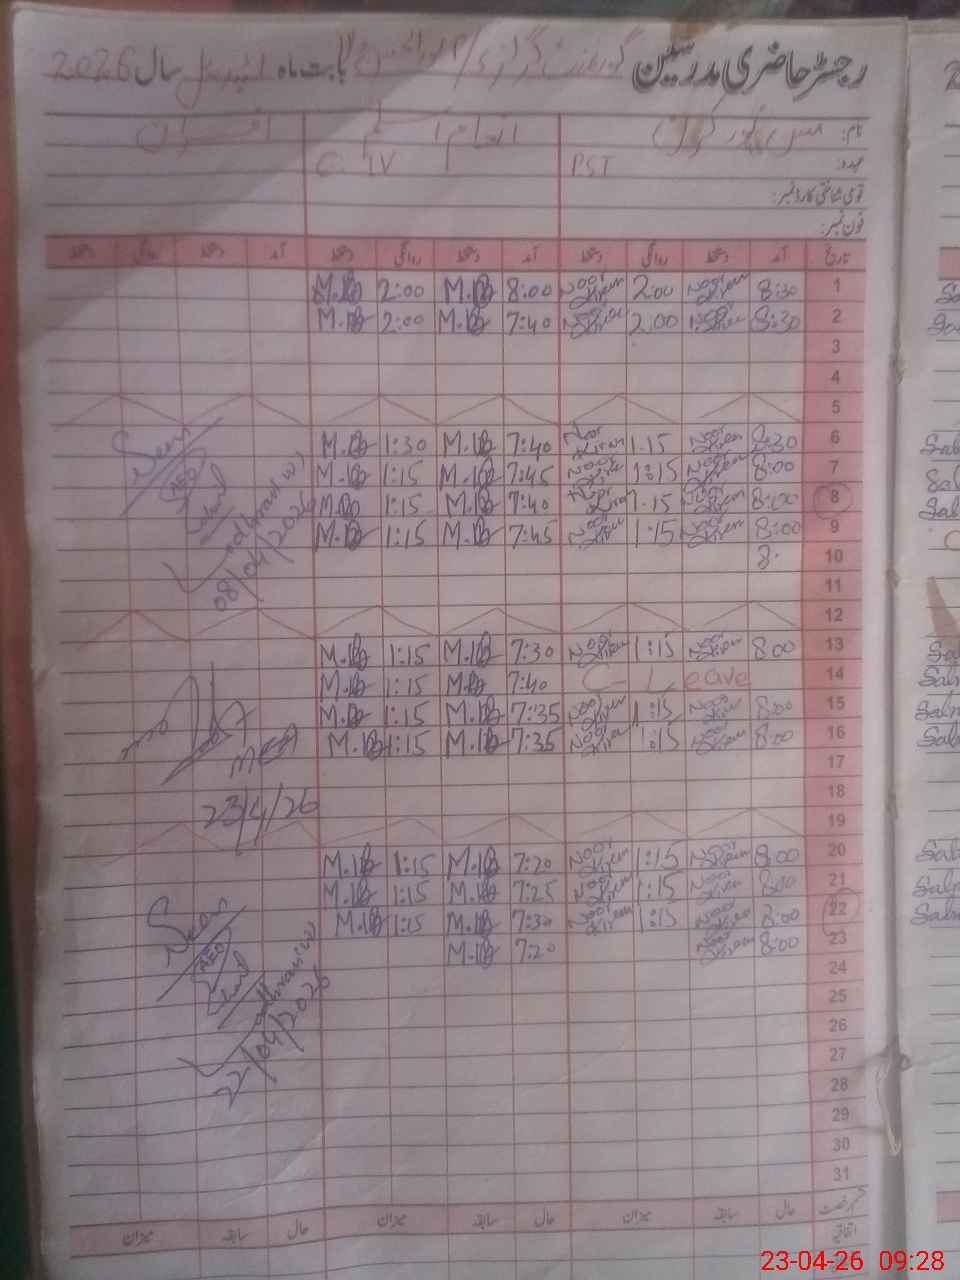 رجسٹر حاضری مدرسین گورنمنٹ گرلز بابت ماہ اپریل سال 2026
نام: مس نور کرن
عہدہ: PST C. IV
قومی شناختی کارڈ نمبر:
فون نمبر:
تاریخ آمد دستخط روانگی دستخط آمد دستخط روانگی دستخط آمد دستخط روانگی دستخط
1 8:30 Noor Kiran 2:00 Noor Kiran 8:00 M.IB 2:00 M.IB
2 8:30 Noor Kiran 2:00 Noor Kiran 7:40 M.IB 2:00 M.IB
3
4
5
6 8:30 Noor Kiran 1.15 Noor Kiran 7:40 M.IB 1:30 M.IB
7 8:00 Noor Kiran 1:15 Noor Kiran 7:45 M.IB 1:15 M.IB
8 8:00 Noor Kiran 1.15 Noor Kiran 7:40 M.IB 1:15 M.IB
9 8:00 Noor Kiran 1:15 Noor Kiran 7:45 M.IB 1:15 M.IB
10 8.
11
12
13 8:00 Noor Kiran 1:15 Noor Kiran 7:30 M.IB 1:15 M.IB
14 C-Leave 7:40 M.IB 1:15 M.IB
15 8:00 Noor Kiran 1:15 Noor Kiran 7:35 M.IB 1:15 M.IB
16 8:00 Noor Kiran 1:15 Noor Kiran 7:35 M.IB 1:15 M.IB
17
18
19
20 8:00 Noor Kiran 1:15 Noor Kiran 7:20 M.IB 1:15 M.IB
21 8:00 Noor Kiran 1:15 Noor Kiran 7:25 M.IB 1:15 M.IB
22 8:00 Noor Kiran 1:15 Noor Kiran 7:30 M.IB 1:15 M.IB
23 8:00 Noor Kiran 7:20 M.IB
24
25
26
27
28
29
30
31
Seen
AEO
08/04/2026
MEA
23/4/26
Seen
AEO
22/04/2026
اتفاقیہ حال سابقہ میزان حال سابقہ میزان حال سابقہ میزان
23-04-26 09:28